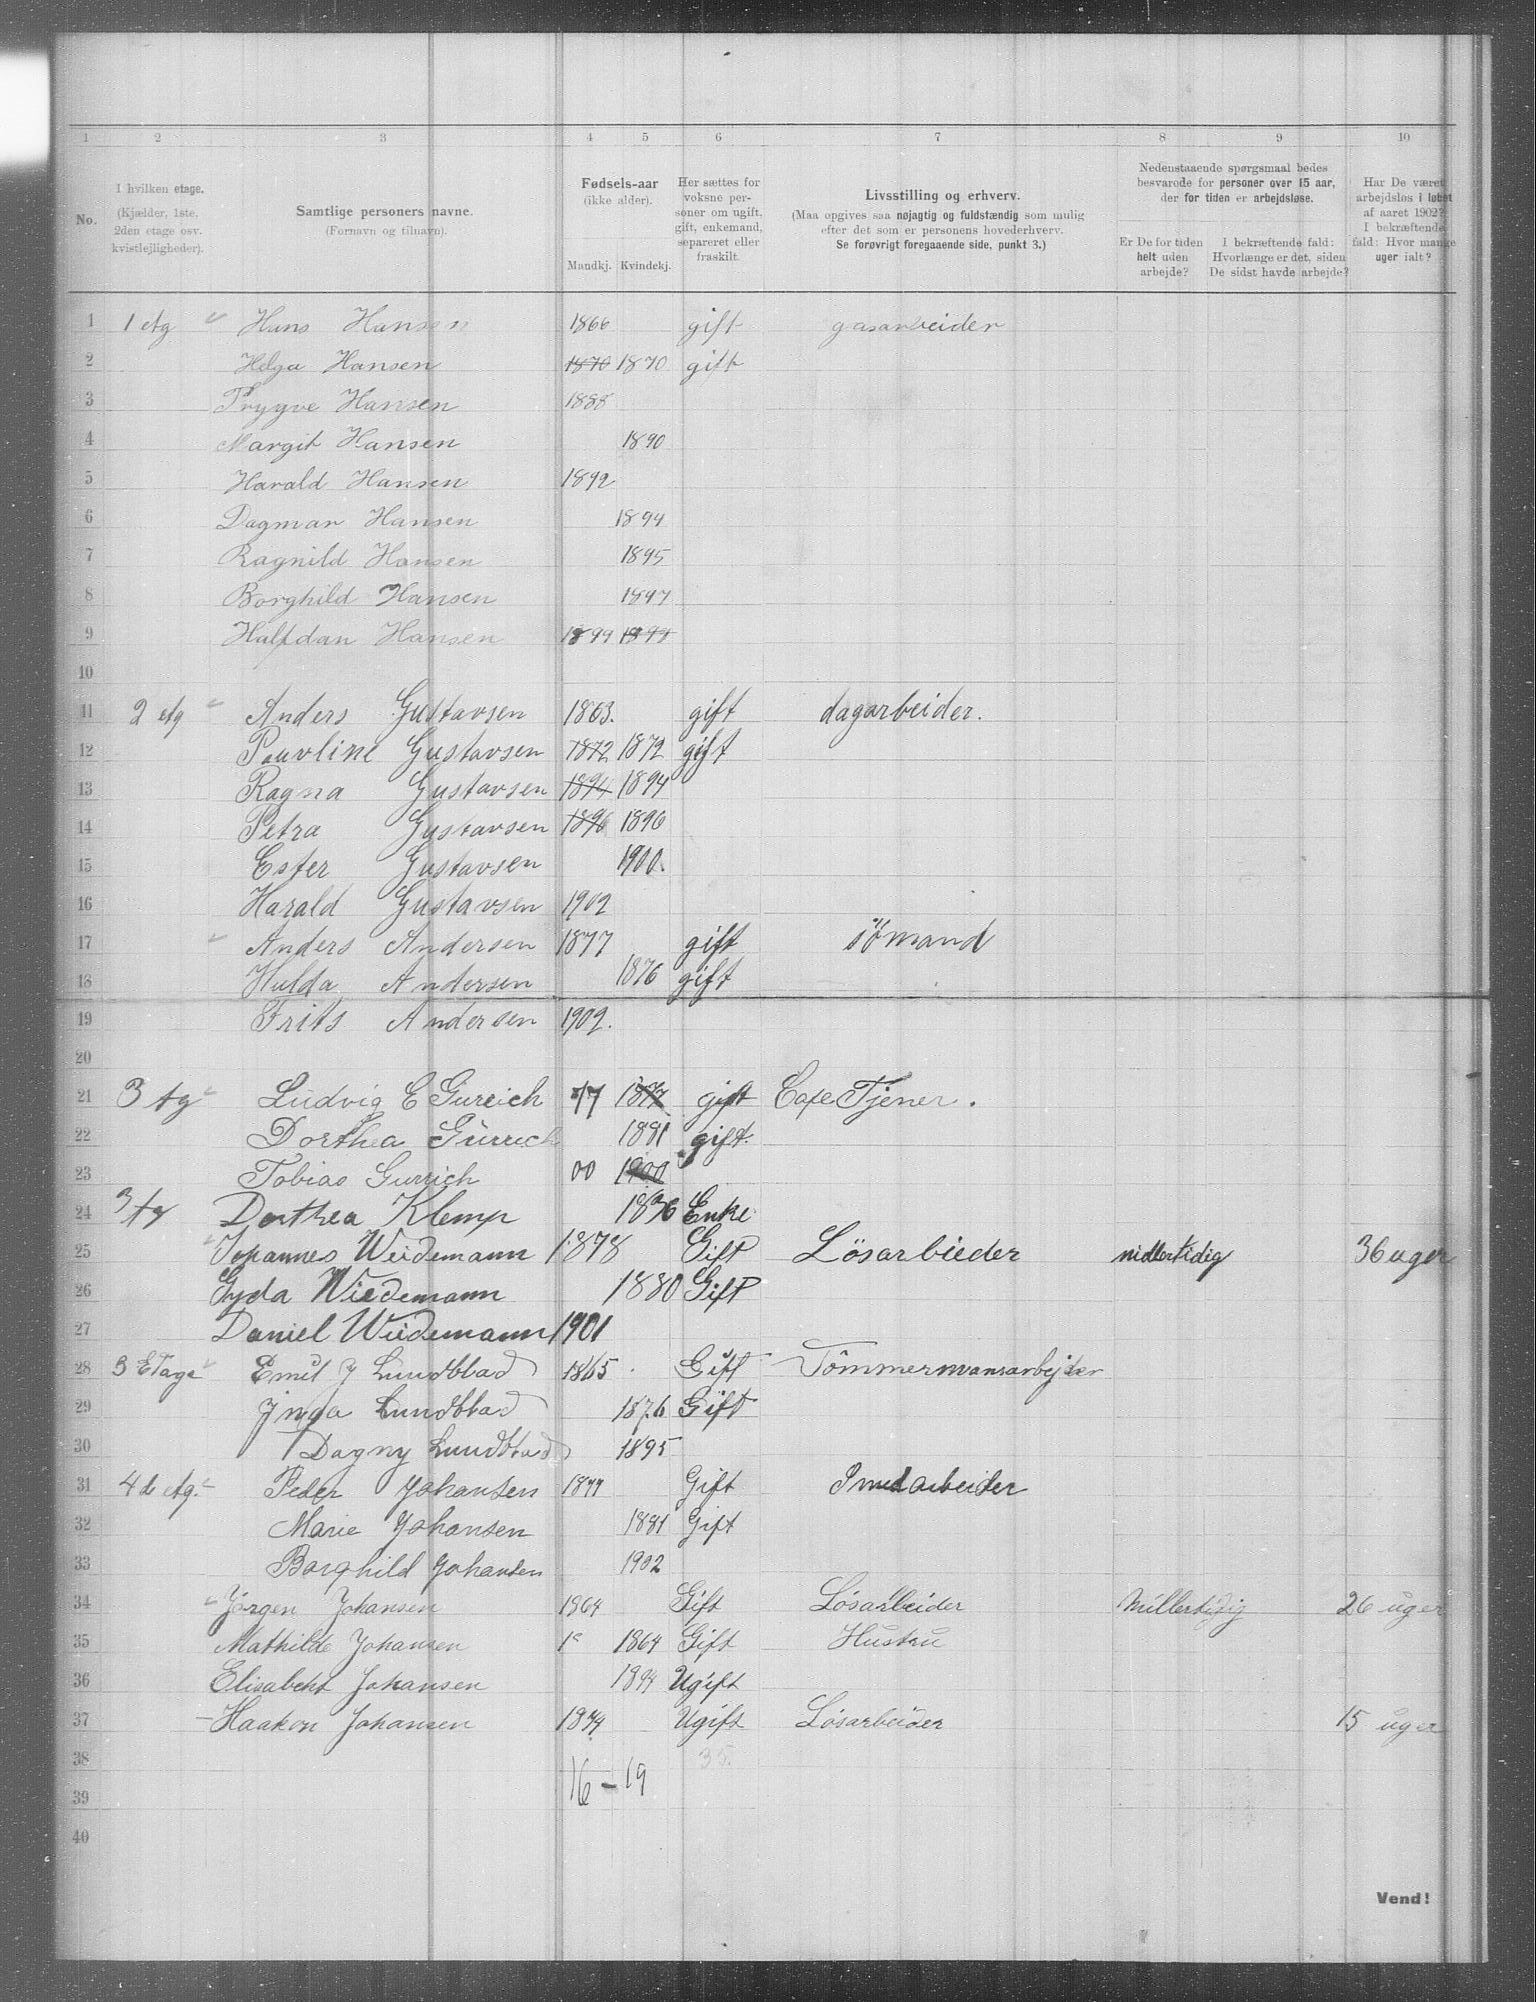 1 2 3 4 5 6 7 8 9 10
No.
I hvilken etage.
(Kjælder, 1ste,
2den etage osv.
kvistlejligheder).
Samtlige personers navne.
(Fornavn og tilnavn).
Fødsels-aar
(ikke alder).
Mandkj. Kvindekj.
Her sættes for
voksne per-
soner om ugift,
gift, enkemand,
separeret eller
fraskilt.
Livsstilling og erhverv.
(Maa opgives saa nøjagtig og fuldstændig som mulig
efter det som er personens hovederhverv.
Se forøvrigt foregaaende side, punkt 3.)
Nedenstaaende spørgsmaal bedes
besvarede for personer over 15 aar,
der for tiden er arbejdsløse.
Er De for tiden
helt uden
arbejde?
I bekræftende fald:
Hvorlænge er det, siden
De sidst havde arbejde?
Har De været
arbejdsløs i løbet
af aaret 1902?
I bekræftende
fald: Hvor mange
uger ialt?
1 1 etg Hans Hansen 1866 gift gasarbeider
2 Helga Hansen 1870 1870 gift
3 Trygve Hansen 1888
4 Margit Hansen 1890
5 Harald Hansen 1892
6 Dagmar Hansen 1894
7 Ragnild Hansen 1895
8 Borghild Hansen 1897
9 Halfdan Hansen 1899 1899
10
11 2 etg Anders Gustavsen 1863. gift dagarbeider.
12 Pauline Gustavsen 1872 1872 gift
13 Ragna Gustavsen 1894 1894
14 Petra Gustavsen 1896 1896
15 Ester Gustavsen 1900.
16 Harald Gustavsen 1902
17 Anders Andersen 1877 gift sömand
18 Hulda Andersen 1876 gift
19 Frits Andersen 1902.
20
21 3 etg Ludvig E Gureich 77 1877 gift Cafe Tjener.
22 Dorthea Gürrich 1881 gift.
23 Tobias Gurrich 00 1900
24 3 etg Dorthea Klemp 1836 Enke
25 Johannes Weidemann 1878 Gift Lösarbieder midlertidig 36 uger
26 Gyda Wiedemann 1880 Gift
27 Daniel Weidemann 1901
28 3 Etage Emil J Lundblad 1865 Gift Tömmermansarbejder
29 Inga Lundblad 1876 Gift
30 Dagny Lundblad 1895
31 4de etg. Peder Johansen 1877 Gift Smedarbeider
32 Marie Johansen 1881 Gift
33 Borghild Johansen 1902
34 Jörgen Johansen 1864 Gift Lösarbeider Millertidig 26 uger
35 Mathilde Johansen 1864 Gift Hustru
36 Elisabeht Johansen 1894 Ugift
37 Haakon Johansen 1879 Ugift Lösarbeider 15 uger
38 33.
39 16 - 19
40
Vend!